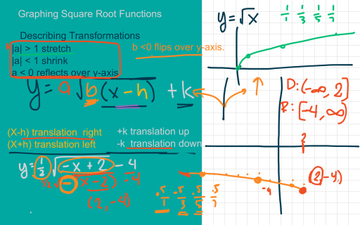 Graphing Square Root Functions
Describing Transformations
|a| > 1 stretch
|a| < 1 shrink
a < 0 reflects over y-axis
b <0 flips over y-axis.
y = a √b(x-h) +k
(X-h) translation right
(X+h) translation left
+k translation up
-k translation down
y = 1/3 √-x + 2 - 4
(2, -4)
y = √x
1/1 1/3 1/5 1/7
D: (-∞, 2]
R: [-4, ∞)
2
-4
(2, -4)
.5/1 .5/3 .5/5 .5/7